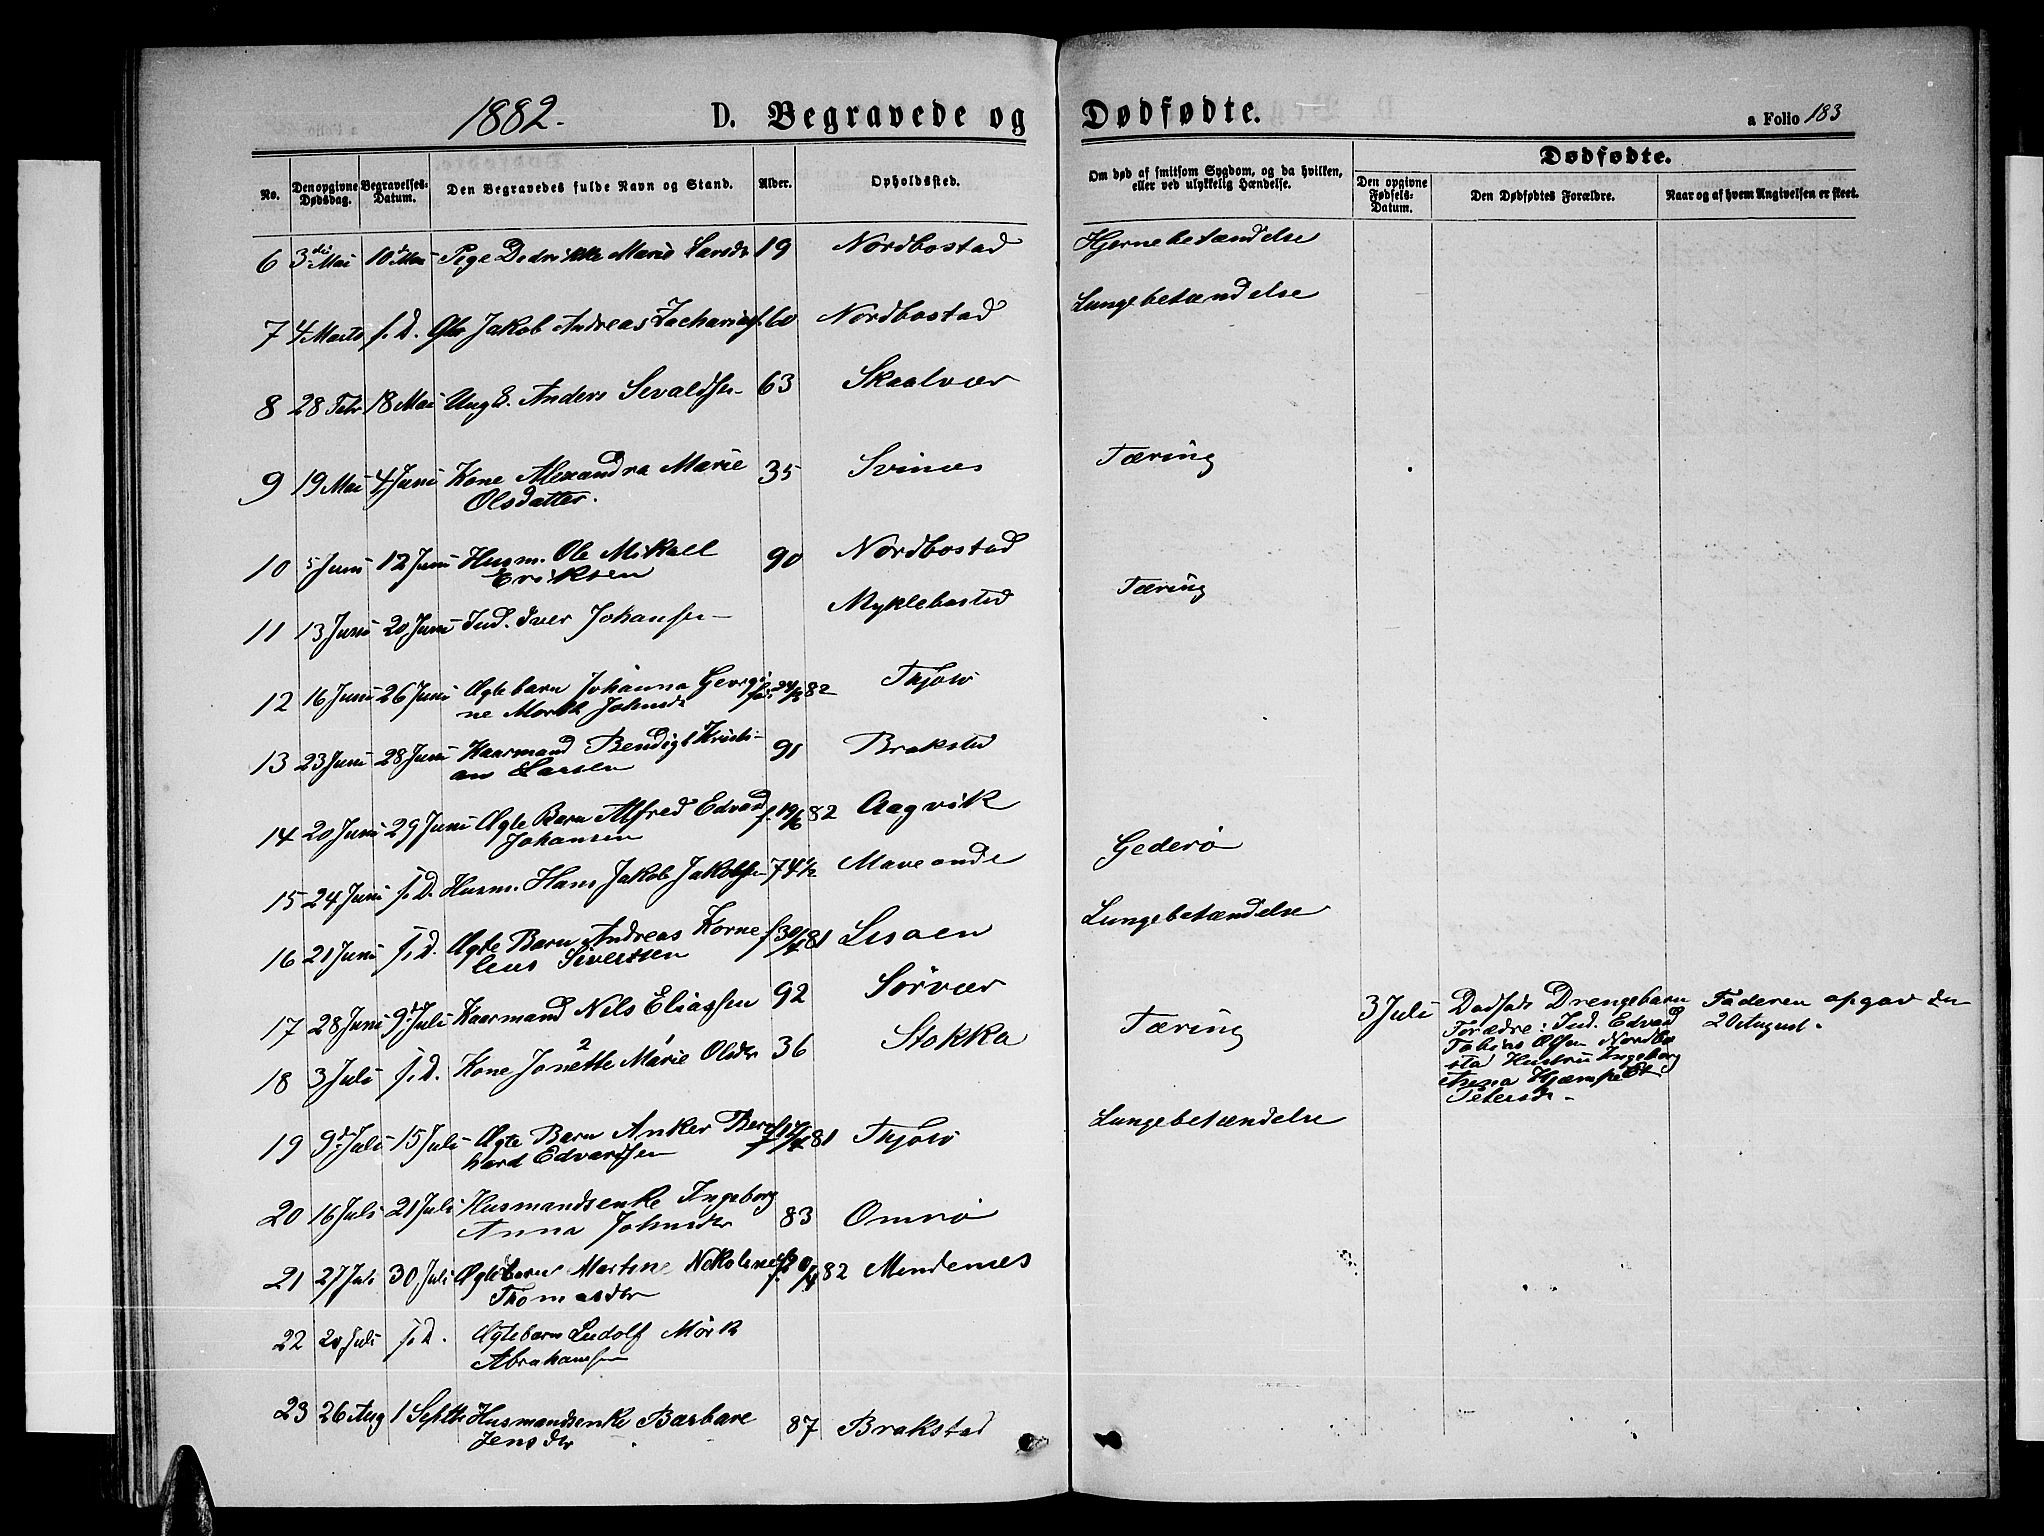 1882.
D. Begravede og Dødfødte.
a Folio 183
No.
Den opgivne Dødsdag.
Begravelses-Datum.
Den Begravedes fulde Navn og Stand.
Alder.
Opholdssted.
Om død af smitsom Sygdom, og da hvilken, eller ved ulykkelig Hændelse.
Dødfødte.
Den opgivne Fødsels-Datum.
Den Dødfødtes Forældre.
Naar og af hvem Angivelsen er skeet.
6 3die Mai 10 Mai Pige Dedrikke Marie Larsdr 19 Nordbostad Hjernebetændelse
7 4 Marts s. D. Jakob Andreas Zacharias 60 Nordbostad Lungebetændelse
8 28 Febr 18 Mai Ung k. Anders Sevaldsen 63 Skaalvær
9 19 Mai 4 Juni Kone Alexandra Marie 35 Svines Tæring
Olsdatter.
10 5 Juni 12 Juni Husm. Ole Mikall 90 Nordbostad
Eriksen
11 13 Juni 20 Juni Ind. Iver Johansen Myklebostad Tæring
12 16 Juni 26 Juni Ægte barn Johanna Georgi 82 Thjøtø
ne Mork Johnsdr
13 23 Juni 28 Juni Kaarmand Bendigt Kristi- 91 Brakstd
an Larsen
14 20 Juni 29 Juni Ægte Barn Alfred Edvard f. 19/6 82 Aagvik
Johansen
15 24 Juni s. D. Husm. Hans Jakob Jakobsen 74 1/2 Maveonde Gederö
16 21 Juni s. D. Ægte Barn Andreas Korne 81 Lungebetændelse
lius Sivertsen
17 28 Juni 9d Juli Kaarmand Nils Eliassen 92 Sörvær
18 3 Juli s. D. Kone Jonette Marie Olsdr 36 Stokka Tæring
3 Juli Dødfødt Drengebarn
Forældre: Ind. Edvard
Tobias Olsen Nordbo
sta Hustru Ingeborg
Anna
Petersdr
Faderen opgav den
20 August.
19 9d Juli 15 Juli Ægte Barn Anker Bern 81 Thjøtø Lungebetændelse
hard Edvardsen
20 16 Juli 21 Juli Husmandsenke Ingeborg
Anna Johnsdr 83 Omnö
21 27 Juli 30 Juli Ægte barn Martine Nikoline 82 Mindenes
Thomasdr
22 20 Juli s. D. Ægtebarn Ludolf Mörk
Abrahamsen
23 26 Aug 1 Septb Husmandsenke Barbare 87 Brakstad
Jensdr